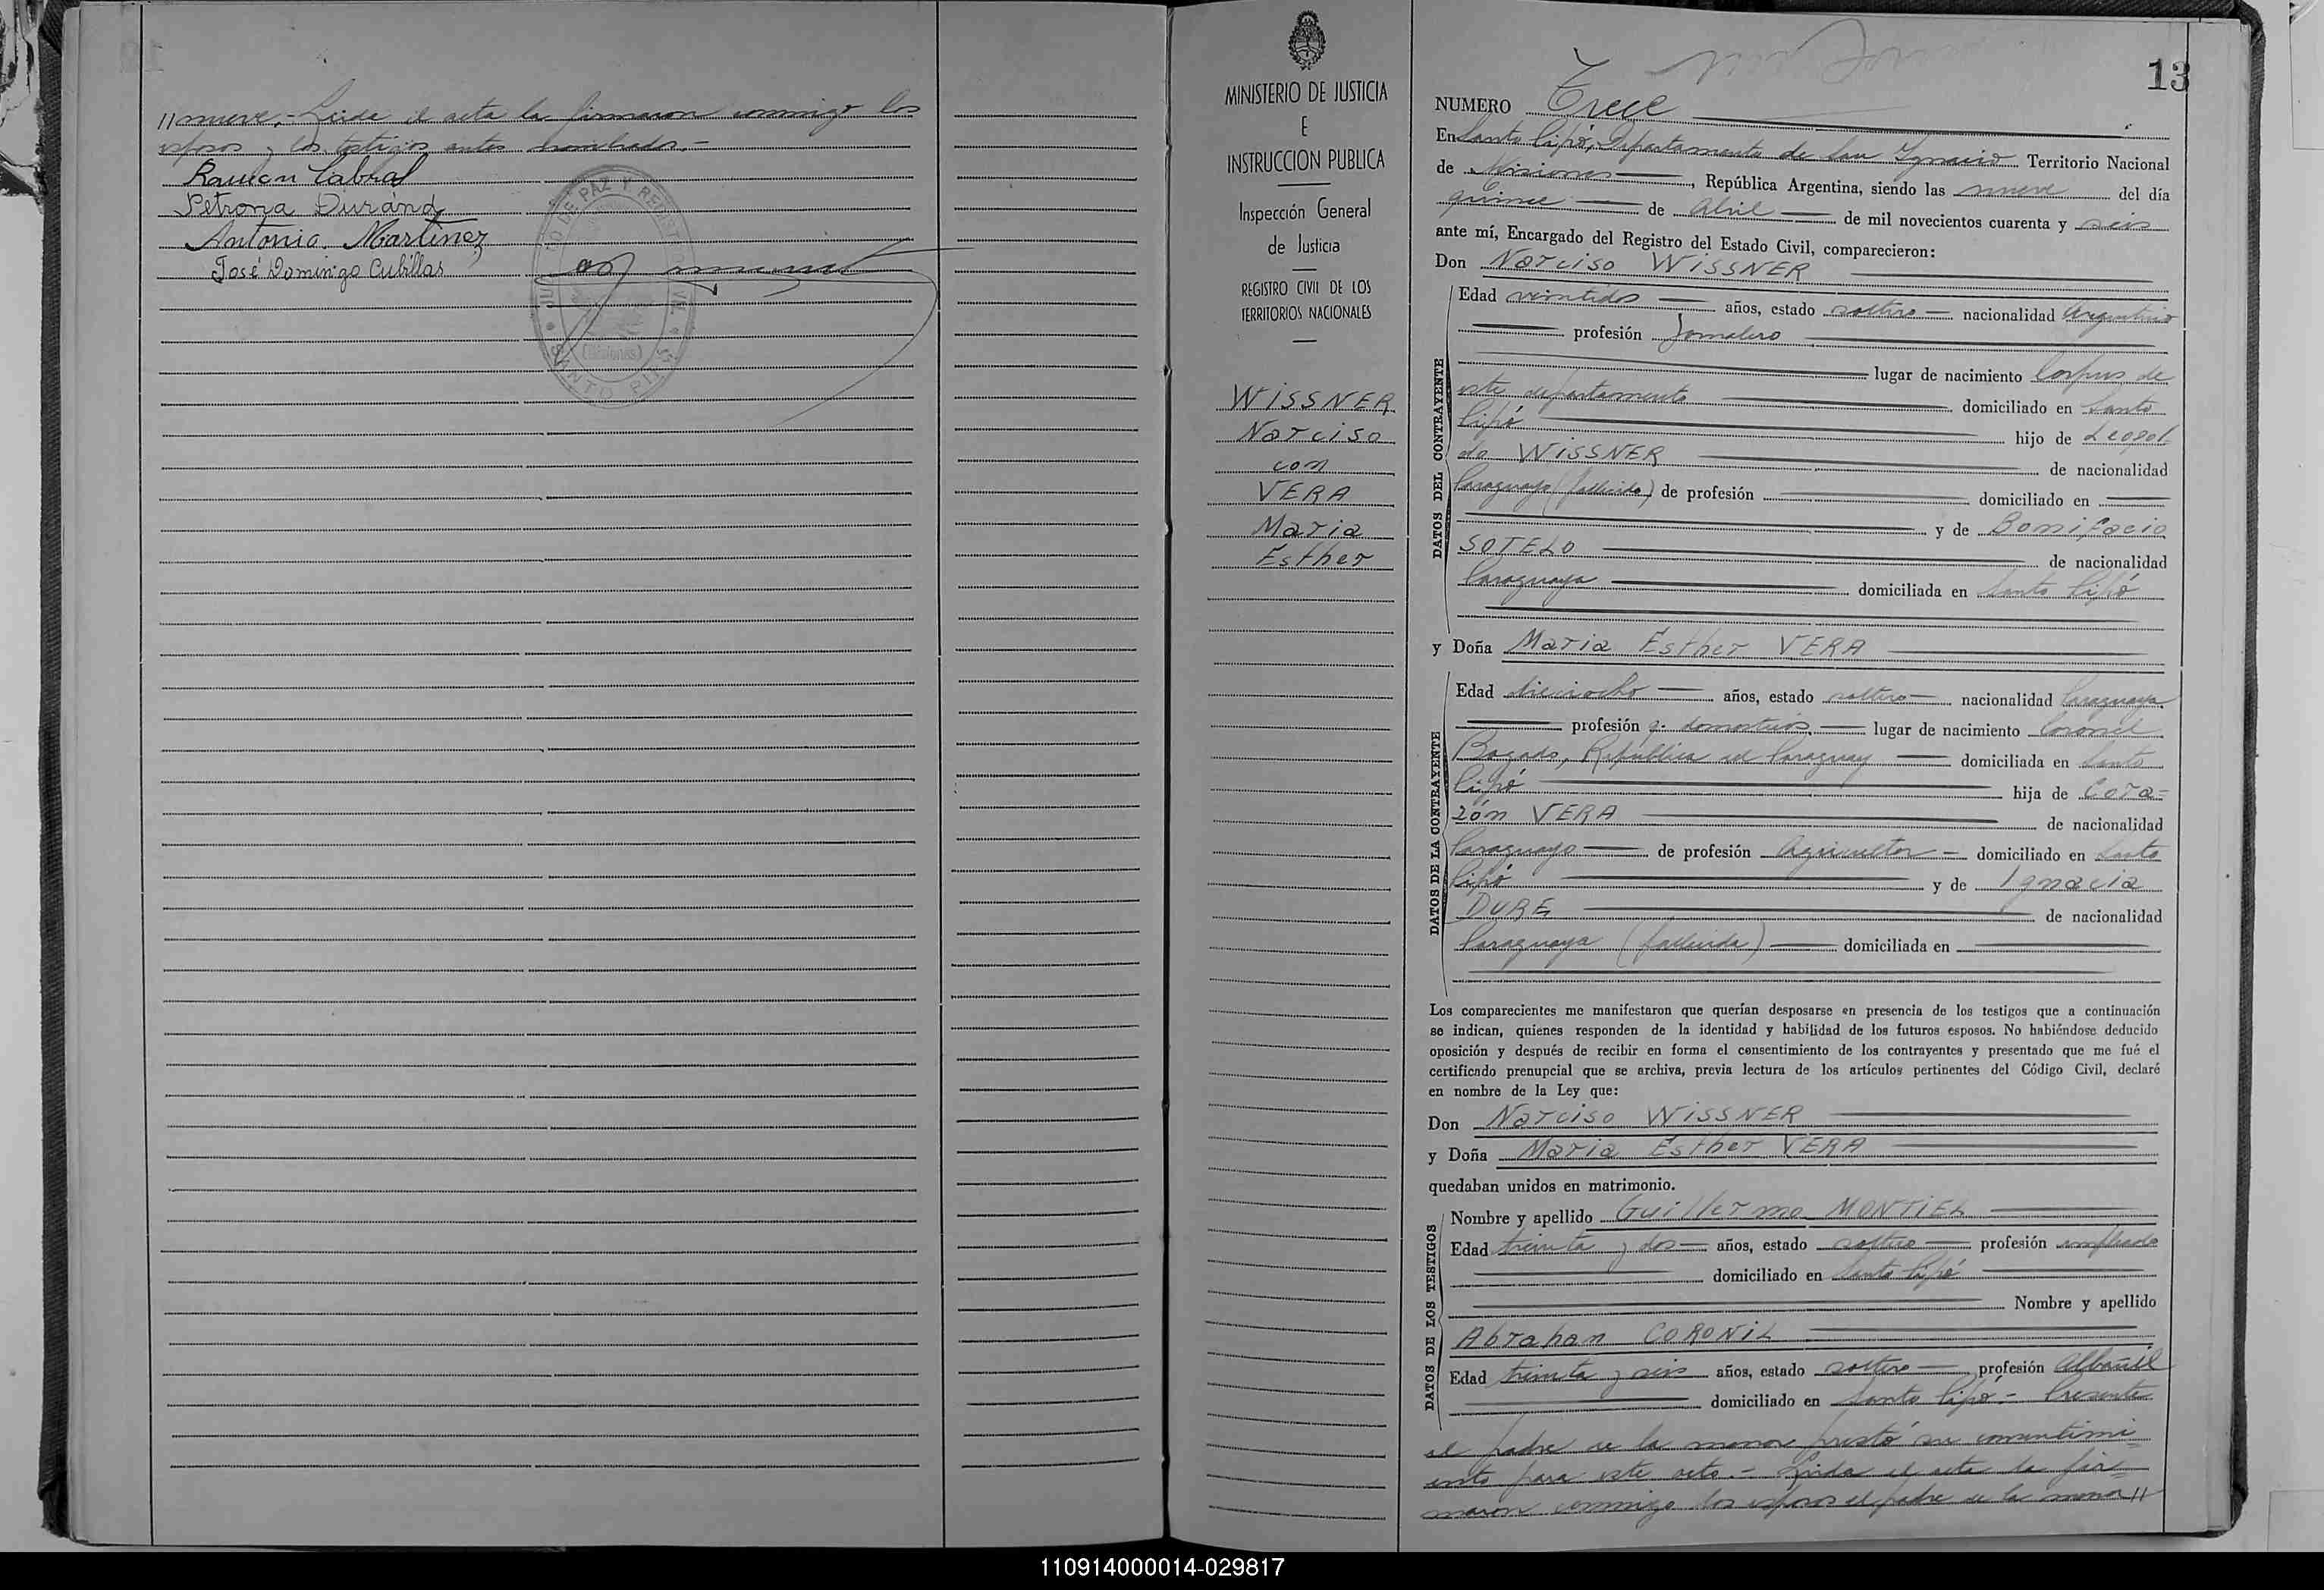 //nueve.- Leida el acta la firmaron conmigo los
esposos y los testigos antes nombrados.-
Ramon Cabral
Petrona Durand
Antonio Martinez
José Domingo Cubillas
JUZ DE PAZ Y REGISTRO CIVIL
(Misiones)
SANTO PIPÓ
MINISTERIO DE JUSTICIA
E
INSTRUCCION PUBLICA
Inspección General
de Justicia
REGISTRO CIVIL DE LOS
TERRITORIOS NACIONALES
WISSNER
Narciso
con
VERA
Maria
Esther
13
NUMERO Trece
En Santo Pipó, Departamento de San Ignacio Territorio Nacional
de Misiones, República Argentina, siendo las nueve del día
quince de Abril de mil novecientos cuarenta y seis
ante mí, Encargado del Registro del Estado Civil, comparecieron:
Don Narciso WISSNER
DATOS DEL CONTRAYENTE
Edad veintidos años, estado soltero nacionalidad Argentino
profesión Jornalero
lugar de nacimiento Corpus de
este departamento domiciliado en Santo
Pipó hijo de Leopol-
do WISSNER de nacionalidad
Paraguayo (fallecido) de profesión domiciliado en
y de Bonifacia
SOTELO de nacionalidad
Paraguaya domiciliada en Santo Pipó
y Doña Maria Esther VERA
DATOS DE LA CONTRAYENTE
Edad dieciocho años, estado soltera nacionalidad Paraguaya
profesión q. domesticos lugar de nacimiento Coronel
Bogado, República del Paraguay domiciliada en Santo
Pipó hija de Cora=
zón VERA de nacionalidad
Paraguayo de profesión Agricultor domiciliado en Santo
Pipó y de Ignacia
DURE de nacionalidad
Paraguaya (fallecida) domiciliada en
Los comparecientes me manifestaron que querían desposarse en presencia de los testigos que a continuación
se indican, quienes responden de la identidad y habilidad de los futuros esposos. No habiéndose deducido
oposición y después de recibir en forma el consentimiento de los contrayentes y presentado que me fué el
certificado prenupcial que se archiva, previa lectura de los artículos pertinentes del Código Civil, declaré
en nombre de la Ley que:
Don Narciso WISSNER
y Doña Maria Esther VERA
quedaban unidos en matrimonio.
DATOS DE LOS TESTIGOS
Nombre y apellido Guillermo MONTIEL
Edad treinta y dos años, estado soltero profesión empleado
domiciliado en Santo Pipó
Nombre y apellido
Abrahan CORONIL
Edad treinta y seis años, estado soltero profesión Albañil
domiciliado en Santo Pipó.- Presente
el padre de la menor prestó su consentimi=
ento para este acto.- Leida el acta la fir=
maron conmigo los esposos el padre de la menor//
110914000014-029817